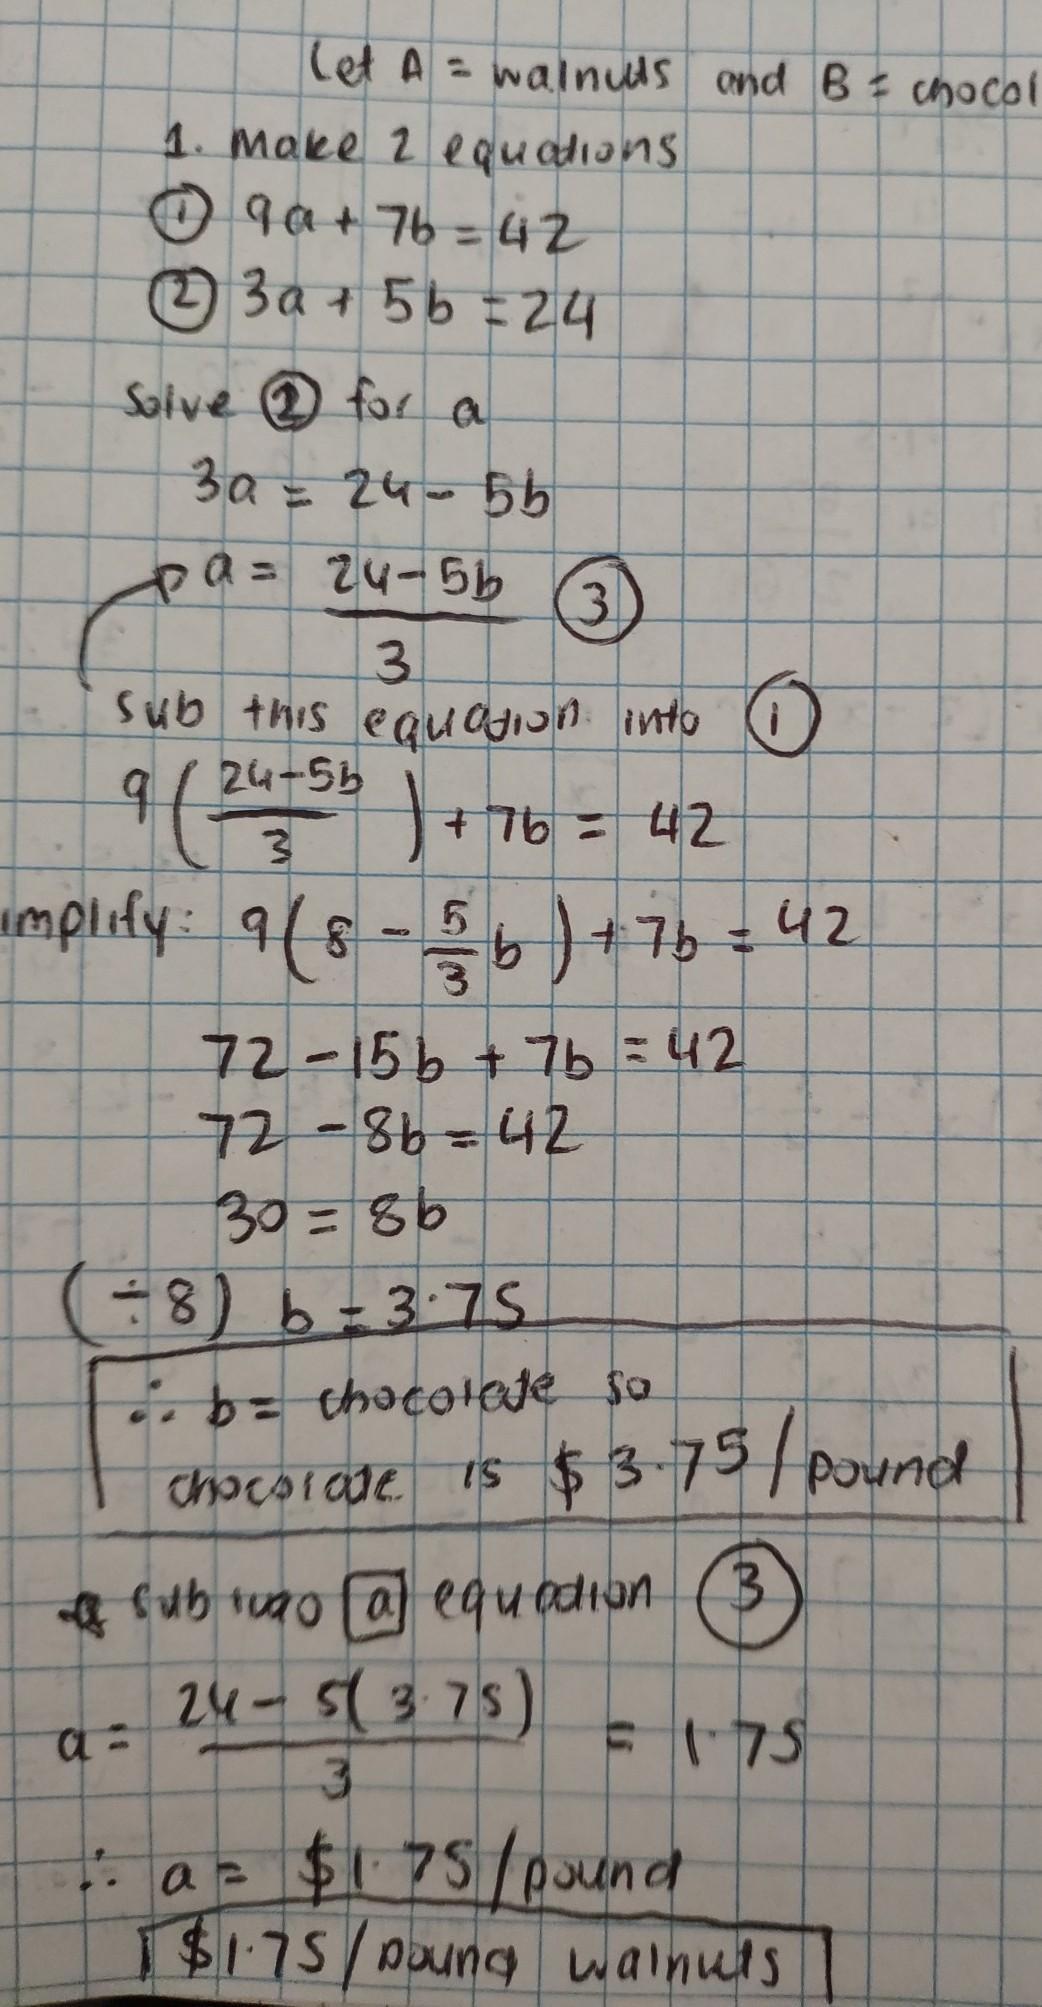 Let A = walnuts and B = chocol
1. Make 2 equations
① 9a + 7b = 42
② 3a + 5b = 24
Solve ② for a
3a = 24 - 5b
a = 24-5b / 3 ③
sub this equation into ①
9 ( 24-5b / 3 ) + 7b = 42
implify: 9 ( 8 - 5/3 b ) + 7b = 42
72 - 15b + 7b = 42
72 - 8b = 42
30 = 8b
(÷8) b = 3.75
∴ b = chocolate so
chocolate is $3.75/pound
sub into a equation ③
a = 24 - 5(3.75) / 3 = 1.75
∴ a = $1.75/pound
$1.75/pound walnuts